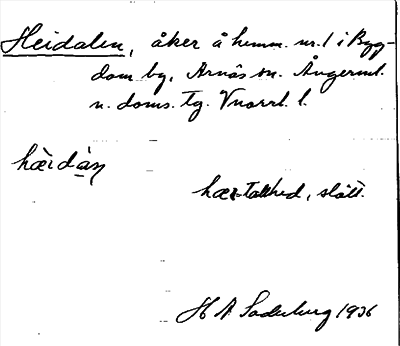 Heidalen, åker å hemm. nr. 1 i Byg-
dom by, Arnäs sn. Ångerml.
n. doms. tg. Vnorrl. l.
hæ̀idàn
tallhed, slätt.
H A Söderberg 1936